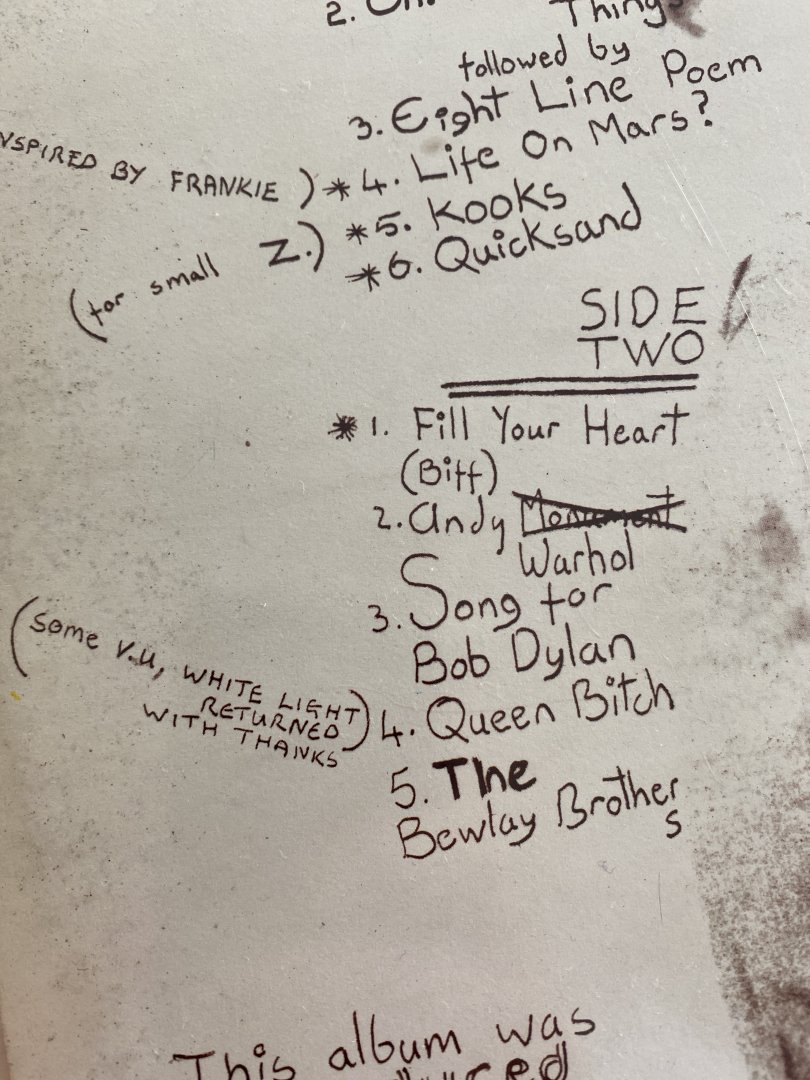 2. Oh!
Things
followed by
3. Eight Line Poem
NSPIRED BY FRANKIE) *4. Life On Mars?
*5. Kooks
(for small Z.) *6. Quicksand
SIDE
TWO
*1. Fill Your Heart
(Biff)
2. Andy Monument
Warhol
3. Song for
Bob Dylan
(Some V.U, WHITE LIGHT
RETURNED
WITH THANKS) 4. Queen Bitch
5. The
Bewlay Brothers
This album was